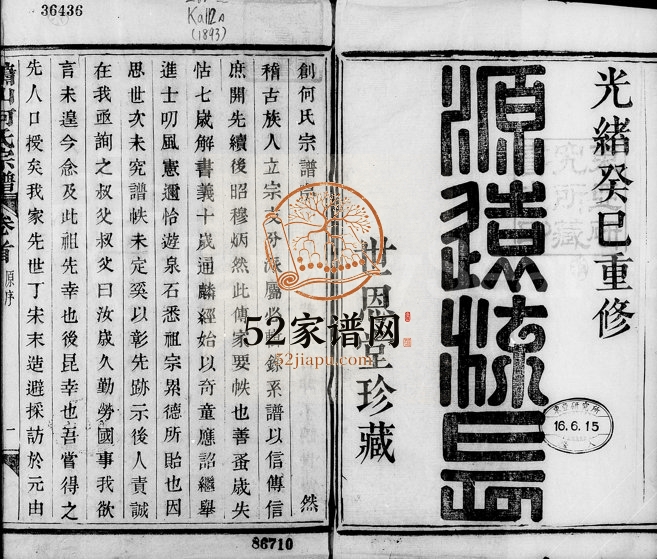 36436
Ka112a
(1893)
光緒癸巳重修
源遠流長
世恩堂珍藏
16.6.15
52家谱网
52jiapu.com
創何氏宗譜
然
稽古族人立宗支分派屬必輯錄系譜以信傳信
庶開先續後昭穆炳然此傳家要帙也善蚤歲失
怙七歲解書義十歲通麟經始以奇童應詔繼舉
進士叨風憲邇怡遊泉石悉祖宗累德所貽也因
思世次未究譜帙未定奚以彰先跡示後人責誠
在我亟詢之叔父叔父曰汝歲久勤勞國事我欲
言未遑今念及此祖先幸也後昆幸也吾嘗得之
先人口授矣我家先世丁宋末造避採訪於元由
蕭山何氏宗譜 卷首 原序 一
86710